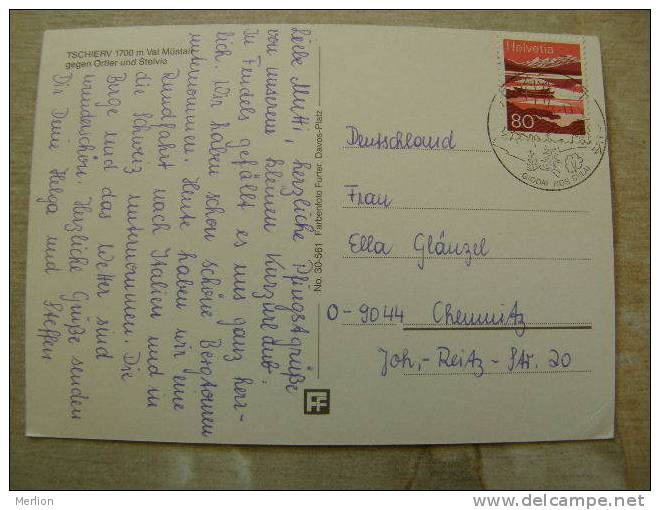 TSCHIERV 1700 m Val Müstair
gegen Ortler und Stelvio
Liebe Mutti, herzliche Pfingstgrüße
von unserem kleinen Kurzurlaub.
In Fendels gefällt es uns ganz herr-
lich. Wir haben schon schöne Bergtouren
unternommen. Heute haben wir eine
Rundfahrt nach Italien und in
die Schweiz unternommen. Die
Berge und das Wetter sind
wunderschön. Herzliche Grüße senden
Dir Deine Helga und Steffen
No. 30-561 Farbenfoto Furter Davos-Platz
FF
Helvetia
80
Deutschland
Frau
Ella Glänzel
O-9044 Chemnitz
Joh,-Reitz-Str. 20
Merlion
www.delcampe.net